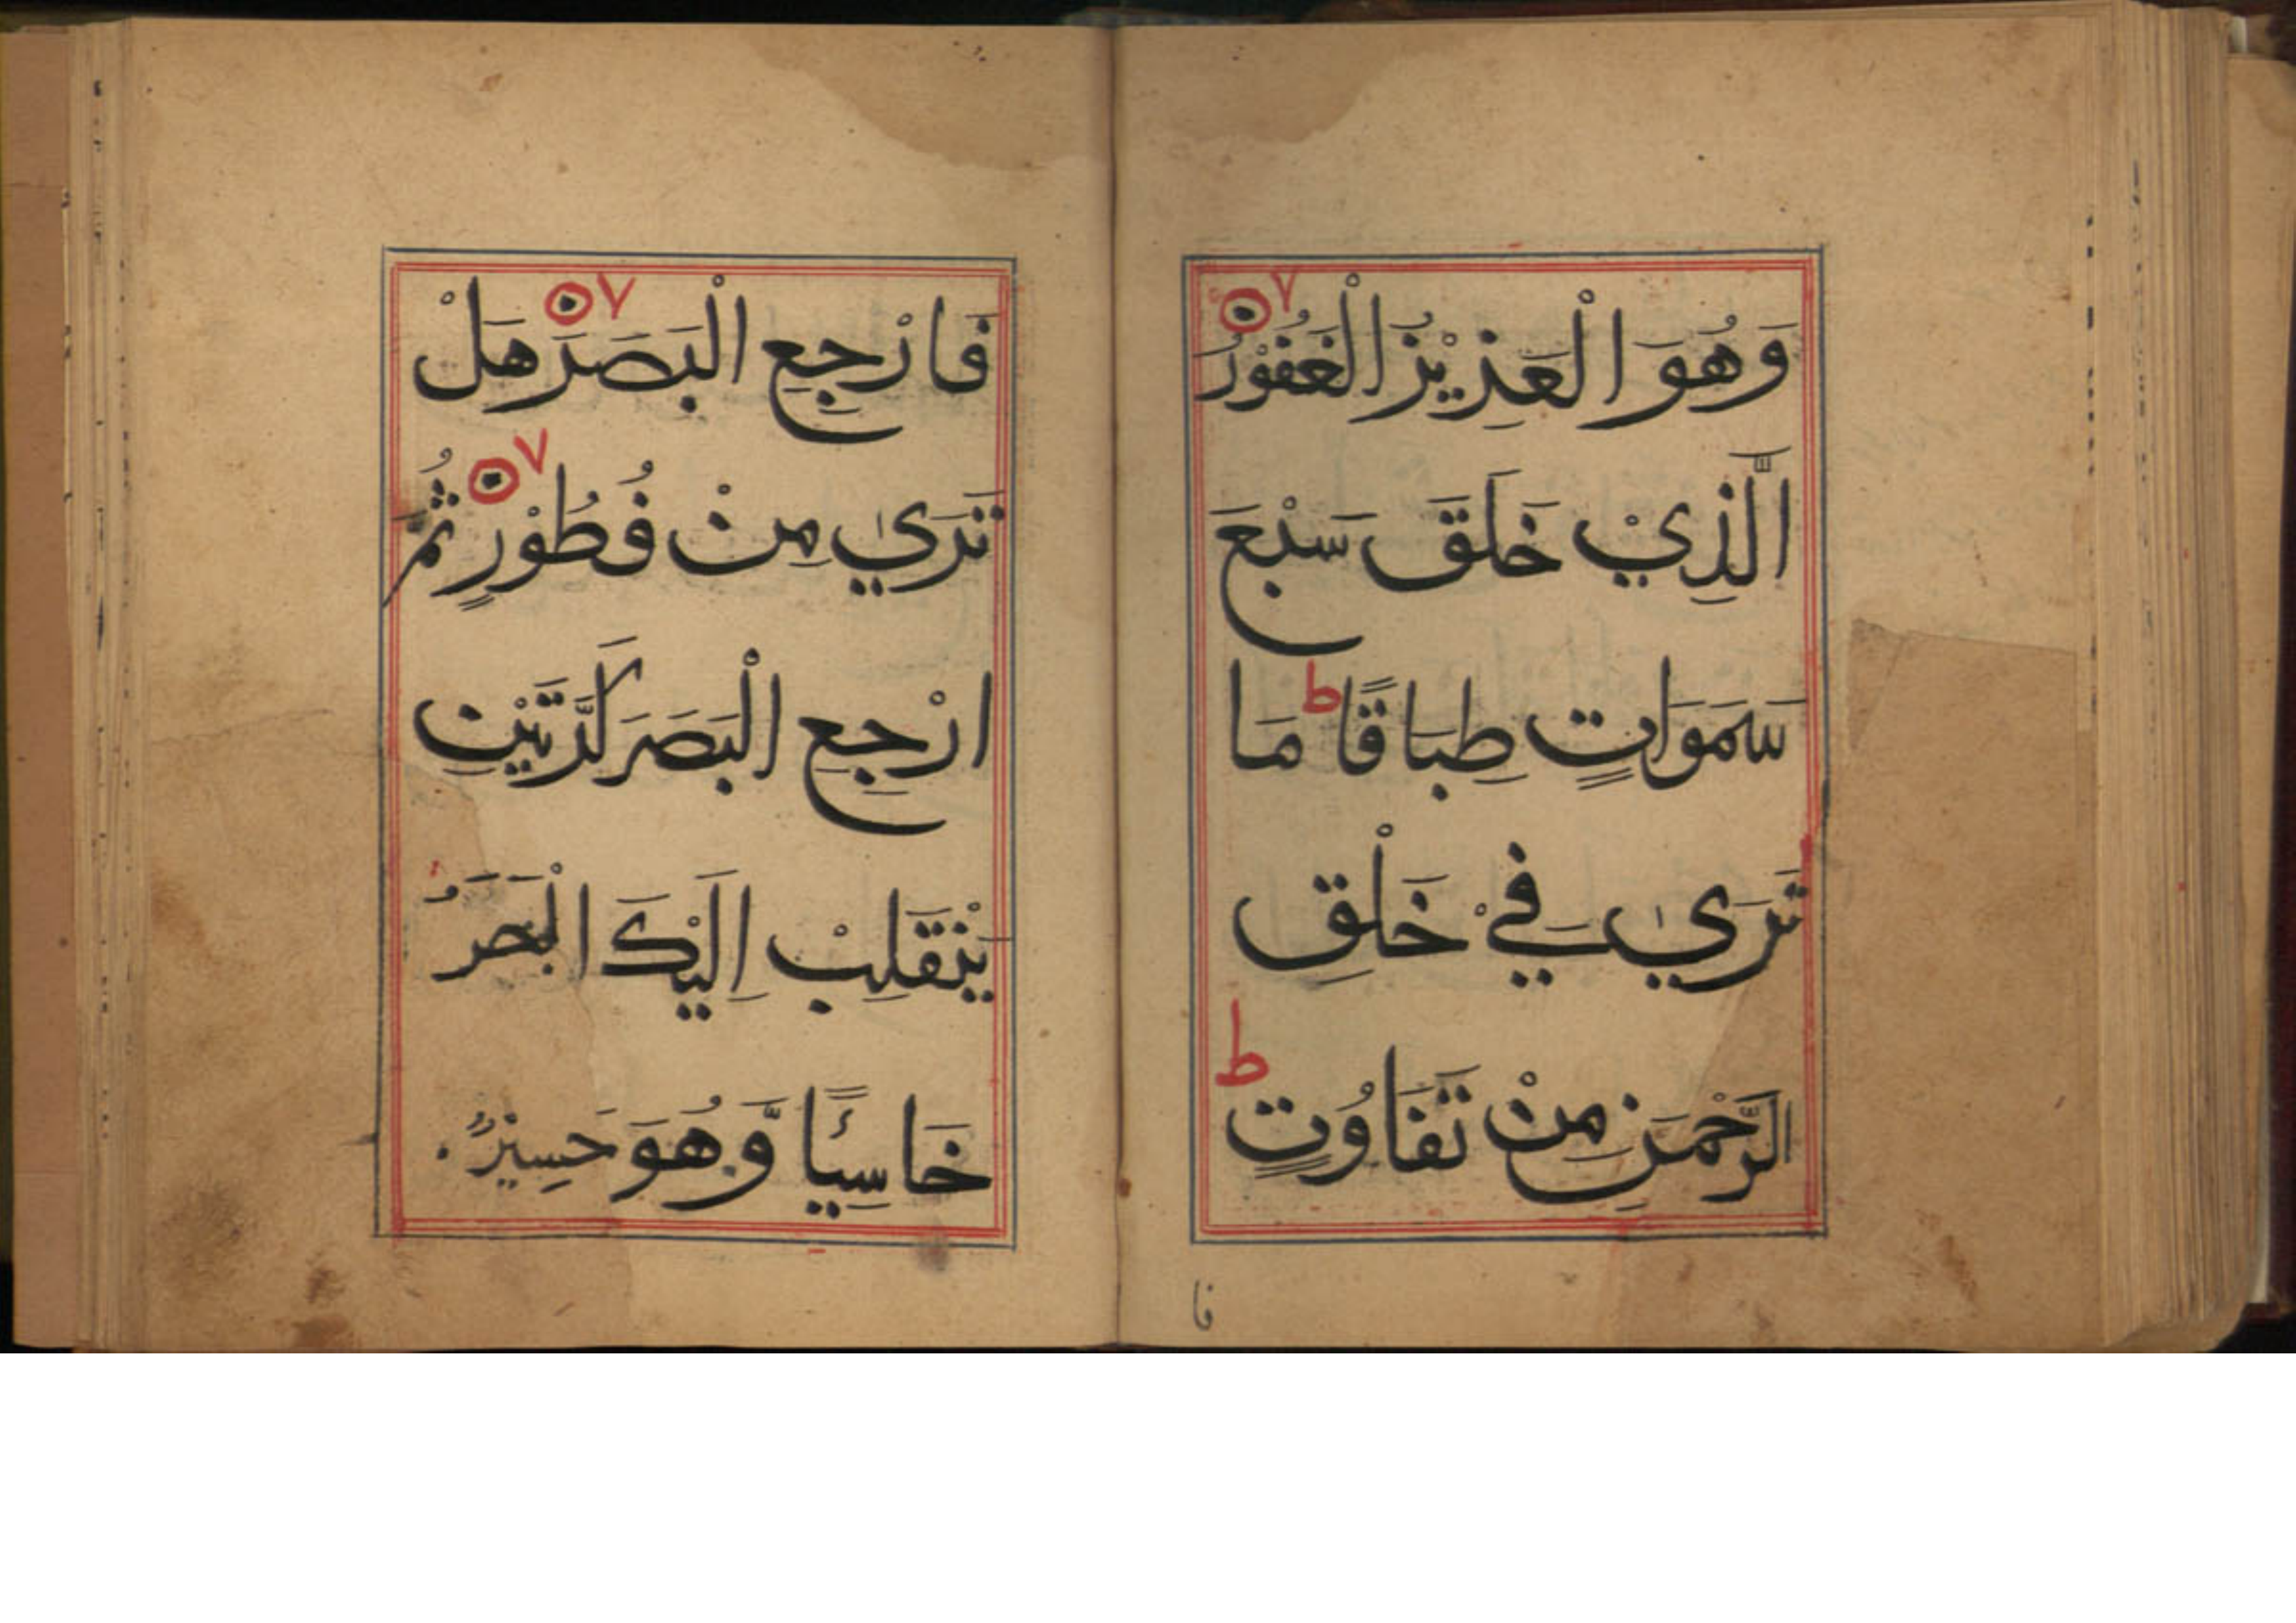 وَهُوَ الْعَزِيْزُ الْغَفُوْرُ
الَّذِيْ خَلَقَ سَبْعَ
سَمَوَاتٍ طِبَاقًا ط مَا
تَرَىٰ فِيْ خَلْقِ
الرَّحْمَنِ مِنْ تَفَاوُتٍ ط
فا
فَارْجِعِ الْبَصَرَ هَلْ
تَرَىٰ مِنْ فُطُوْرٍ ثُمَّ
ارْجِعِ الْبَصَرَ كَرَّتَيْنِ
يَنْقَلِبْ اِلَيْكَ الْبَصَرُ
خَاسِئًا وَّهُوَ حَسِيْرٌ